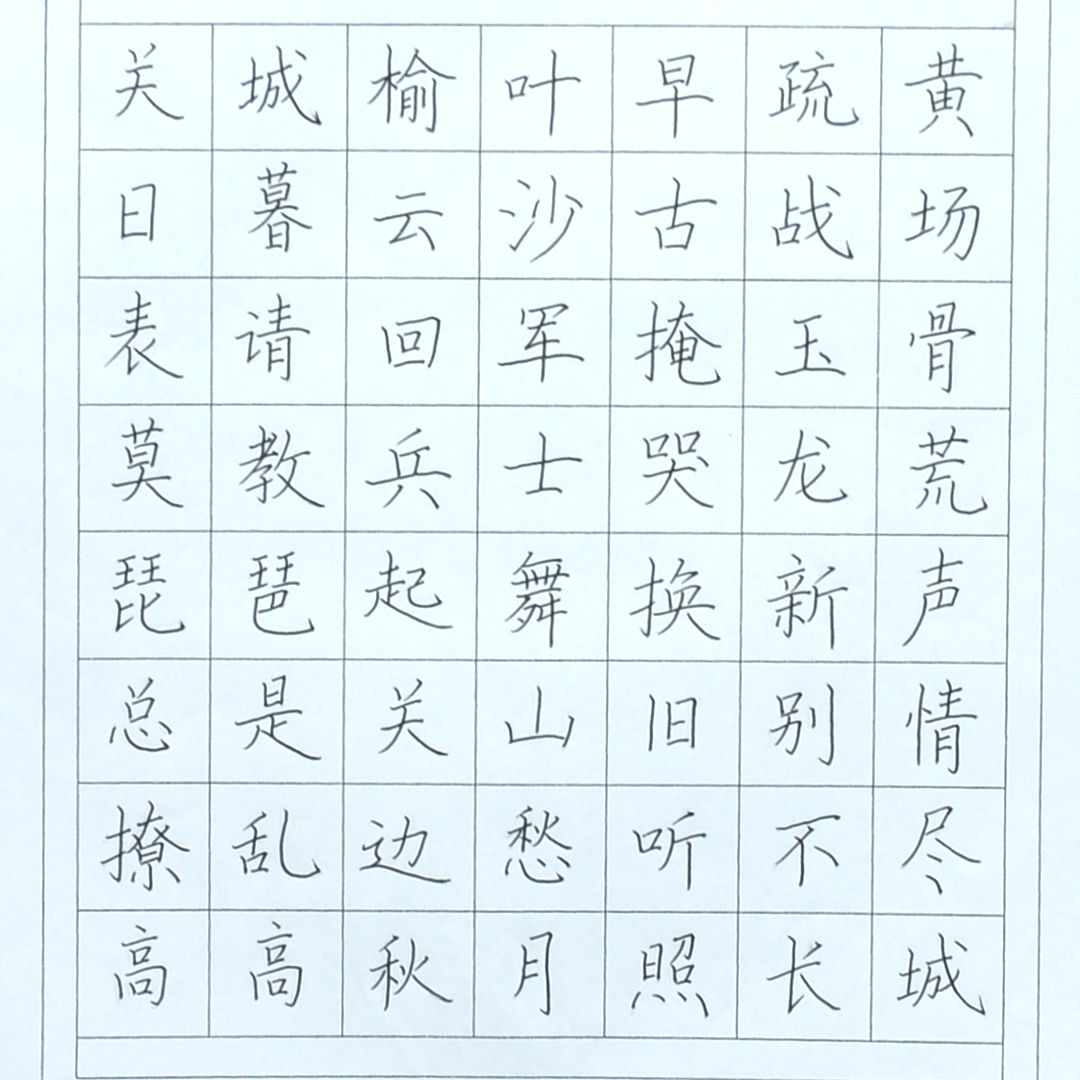 关城榆叶早疏黄
日暮云沙古战场
表请回军掩玉骨
莫教兵士哭龙荒
琵琶起舞换新声
总是关山旧别情
撩乱边愁听不尽
高高秋月照长城